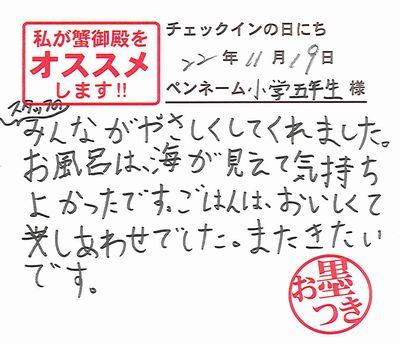 私が蟹御殿を
オススメ
します!!
チェックインの日にち
22年11月19日
ペンネーム 小学五年生 様
スタッフの
みんながやさしくしてくれました。
お風呂は、海が見えて気持ち
よかったです。ごはんは、おいしくて
しあわせでした。またきたい
です。
お墨つき